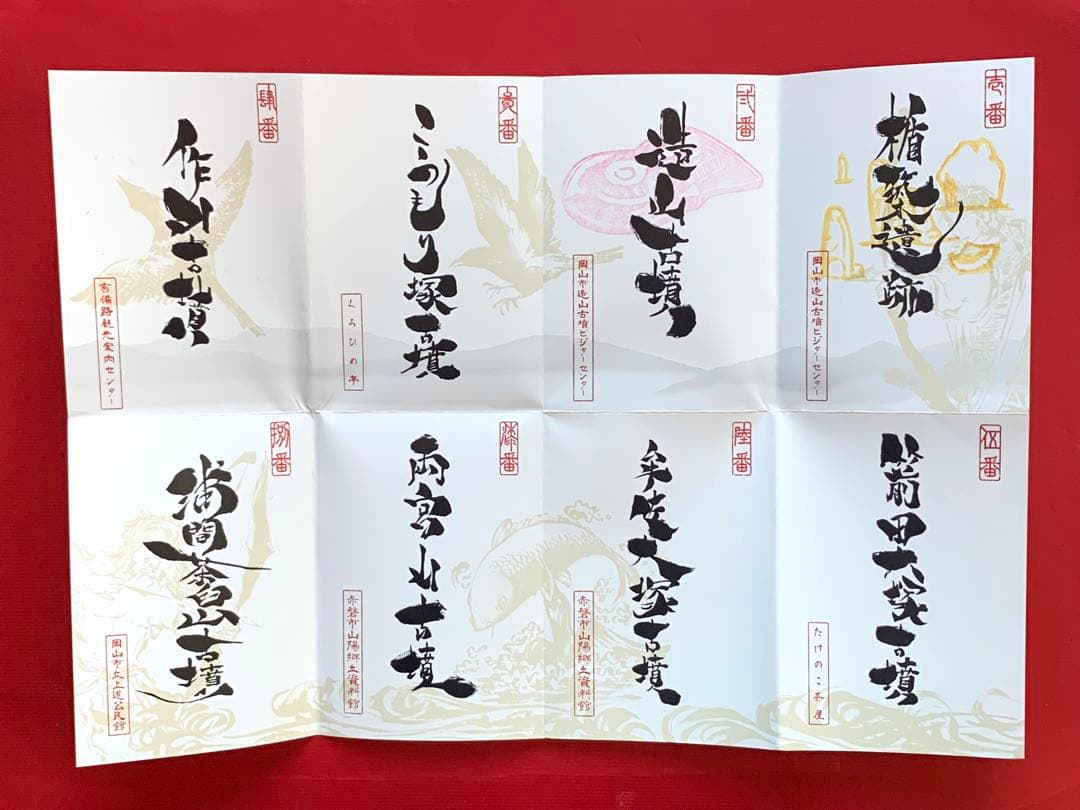 壱番
楯築遺跡
岡山市造山古墳ビジターセンター
弐番
造山古墳
岡山市造山古墳ビジターセンター
参番
こうもり塚古墳
くろひめ亭
肆番
作山古墳
吉備路観光案内センター
伍番
箭田大塚古墳
たけのこ茶屋
陸番
牟佐大塚古墳
赤磐市山陽郷土資料館
漆番
両宮山古墳
赤磐市山陽郷土資料館
捌番
浦間茶臼山古墳
岡山市立上道公民館